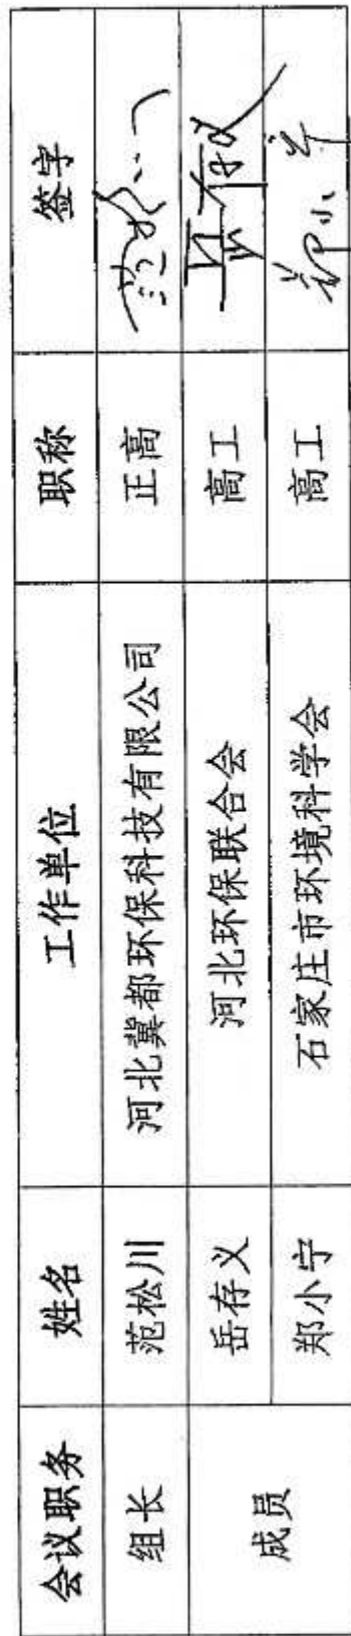 会议职务 姓名 工作单位 职称 签字
组长 范松川 河北冀都环保科技有限公司 正高 范松川
成员 岳存义 河北环保联合会 高工 岳存义
郑小宁 石家庄市环境科学会 高工 郑小宁